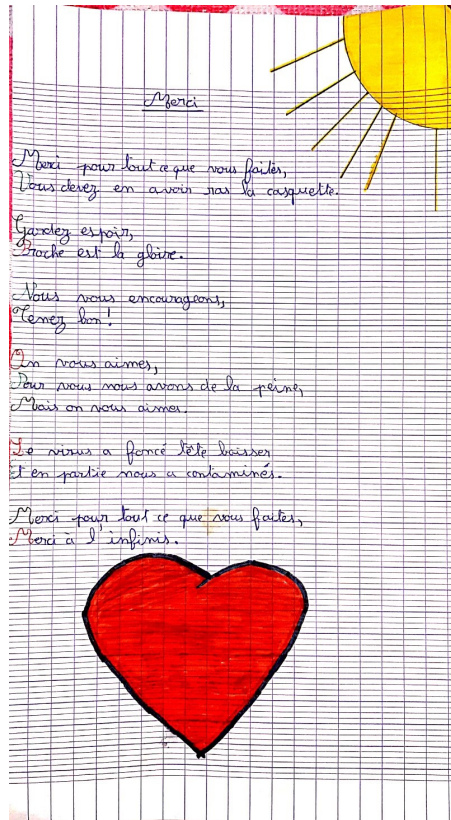 Merci
Merci pour tout ce que vous faites,
Vous devez en avoir ras la casquette.
Gardez espoir,
Proche est la gloire.
Nous vous encourageons,
Tenez bon!
On vous aimes,
Pour vous nous avons de la peine,
Mais on vous aimes.
Le virus a foncé tête baisser
Et en partie nous a contaminés.
Merci pour tout ce que vous faites,
Merci à l'infinis.